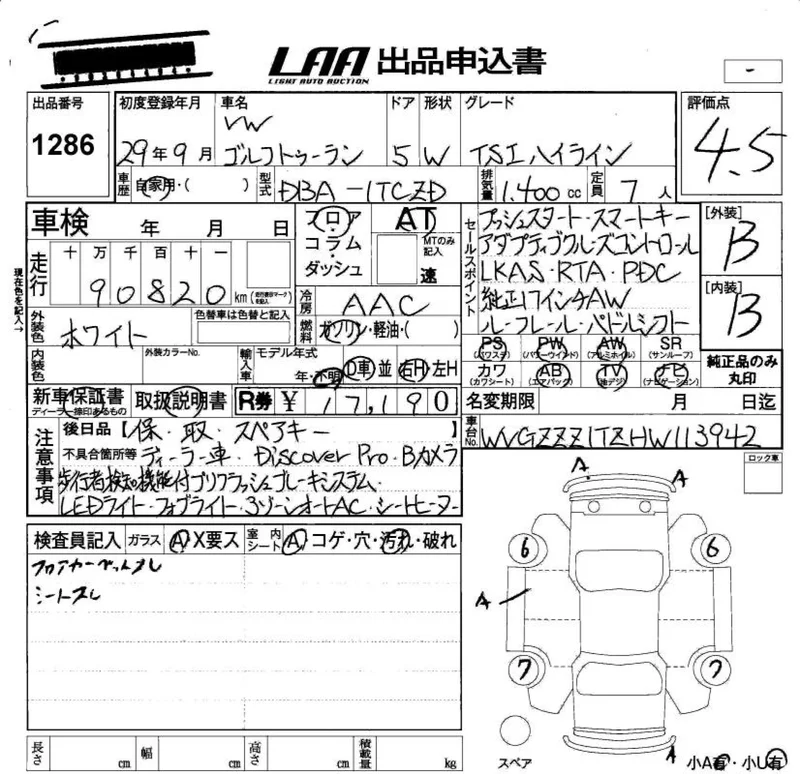 LAA 出品申込書
LIGHT AUTO AUCTION
-
出品番号 1286
初度登録年月 29年9月
車名 VW ゴルフトゥーラン
ドア 5
形状 W
グレード TSIハイライン
評価点 4.5
車歴 自家用・( )
型式 DBA-1TCZD
排気量 1.400cc
定員 7人
車検 年 月 日
フロア コラム・ダッシュ
AT
MTのみ記入 速
セールスポイント
プッシュスタート・スマートキー
アダプティブクルーズコントロール
LKAS・RTA・PDC
純正17インチAW
ルーフレール・パドルシフト
[外装] B
[内装] B
現在色を記入→
走行 十万千百十一
90820km (走行数計マーク)
冷房 AAC
燃料 ガソリン・軽油・( )
外装色 ホワイト
色替車は色替と記入
外装カラーNo.
内装色
輸入車 モデル年式 年・不明 D車 並 右H・左H
PS (パワステ) PW (パワーウインド) AW (アルミホイル) SR (サンルーフ)
カワ (カワシート) AB (エアバック) TV (地デジ) ナビ (ナビゲーション)
純正品のみ丸印
新車保証書 ディーラー捺印あるもの
取扱説明書
R券 ¥17,190
名変期限 月 日迄
車台No. WVGZZZ1TZHW113942
注意事項
後日品【保・取・スペアキー
不具合箇所等 ディーラー車・Discover Pro・Bカメラ
歩行者検知機能付プリクラッシュブレーキシステム
LEDライト・フォグライト・3ゾーンオートAC・シートヒーター
ロック車
検査員記入 ガラス A X要ス
室内シート A コゲ・穴・汚れ・破れ
フロアカーペットスレ
シートスレ
A A
6 6
A A
7 7
A
スペア
小A有・小U有
長さ cm 幅 cm 高さ cm 積載量 kg